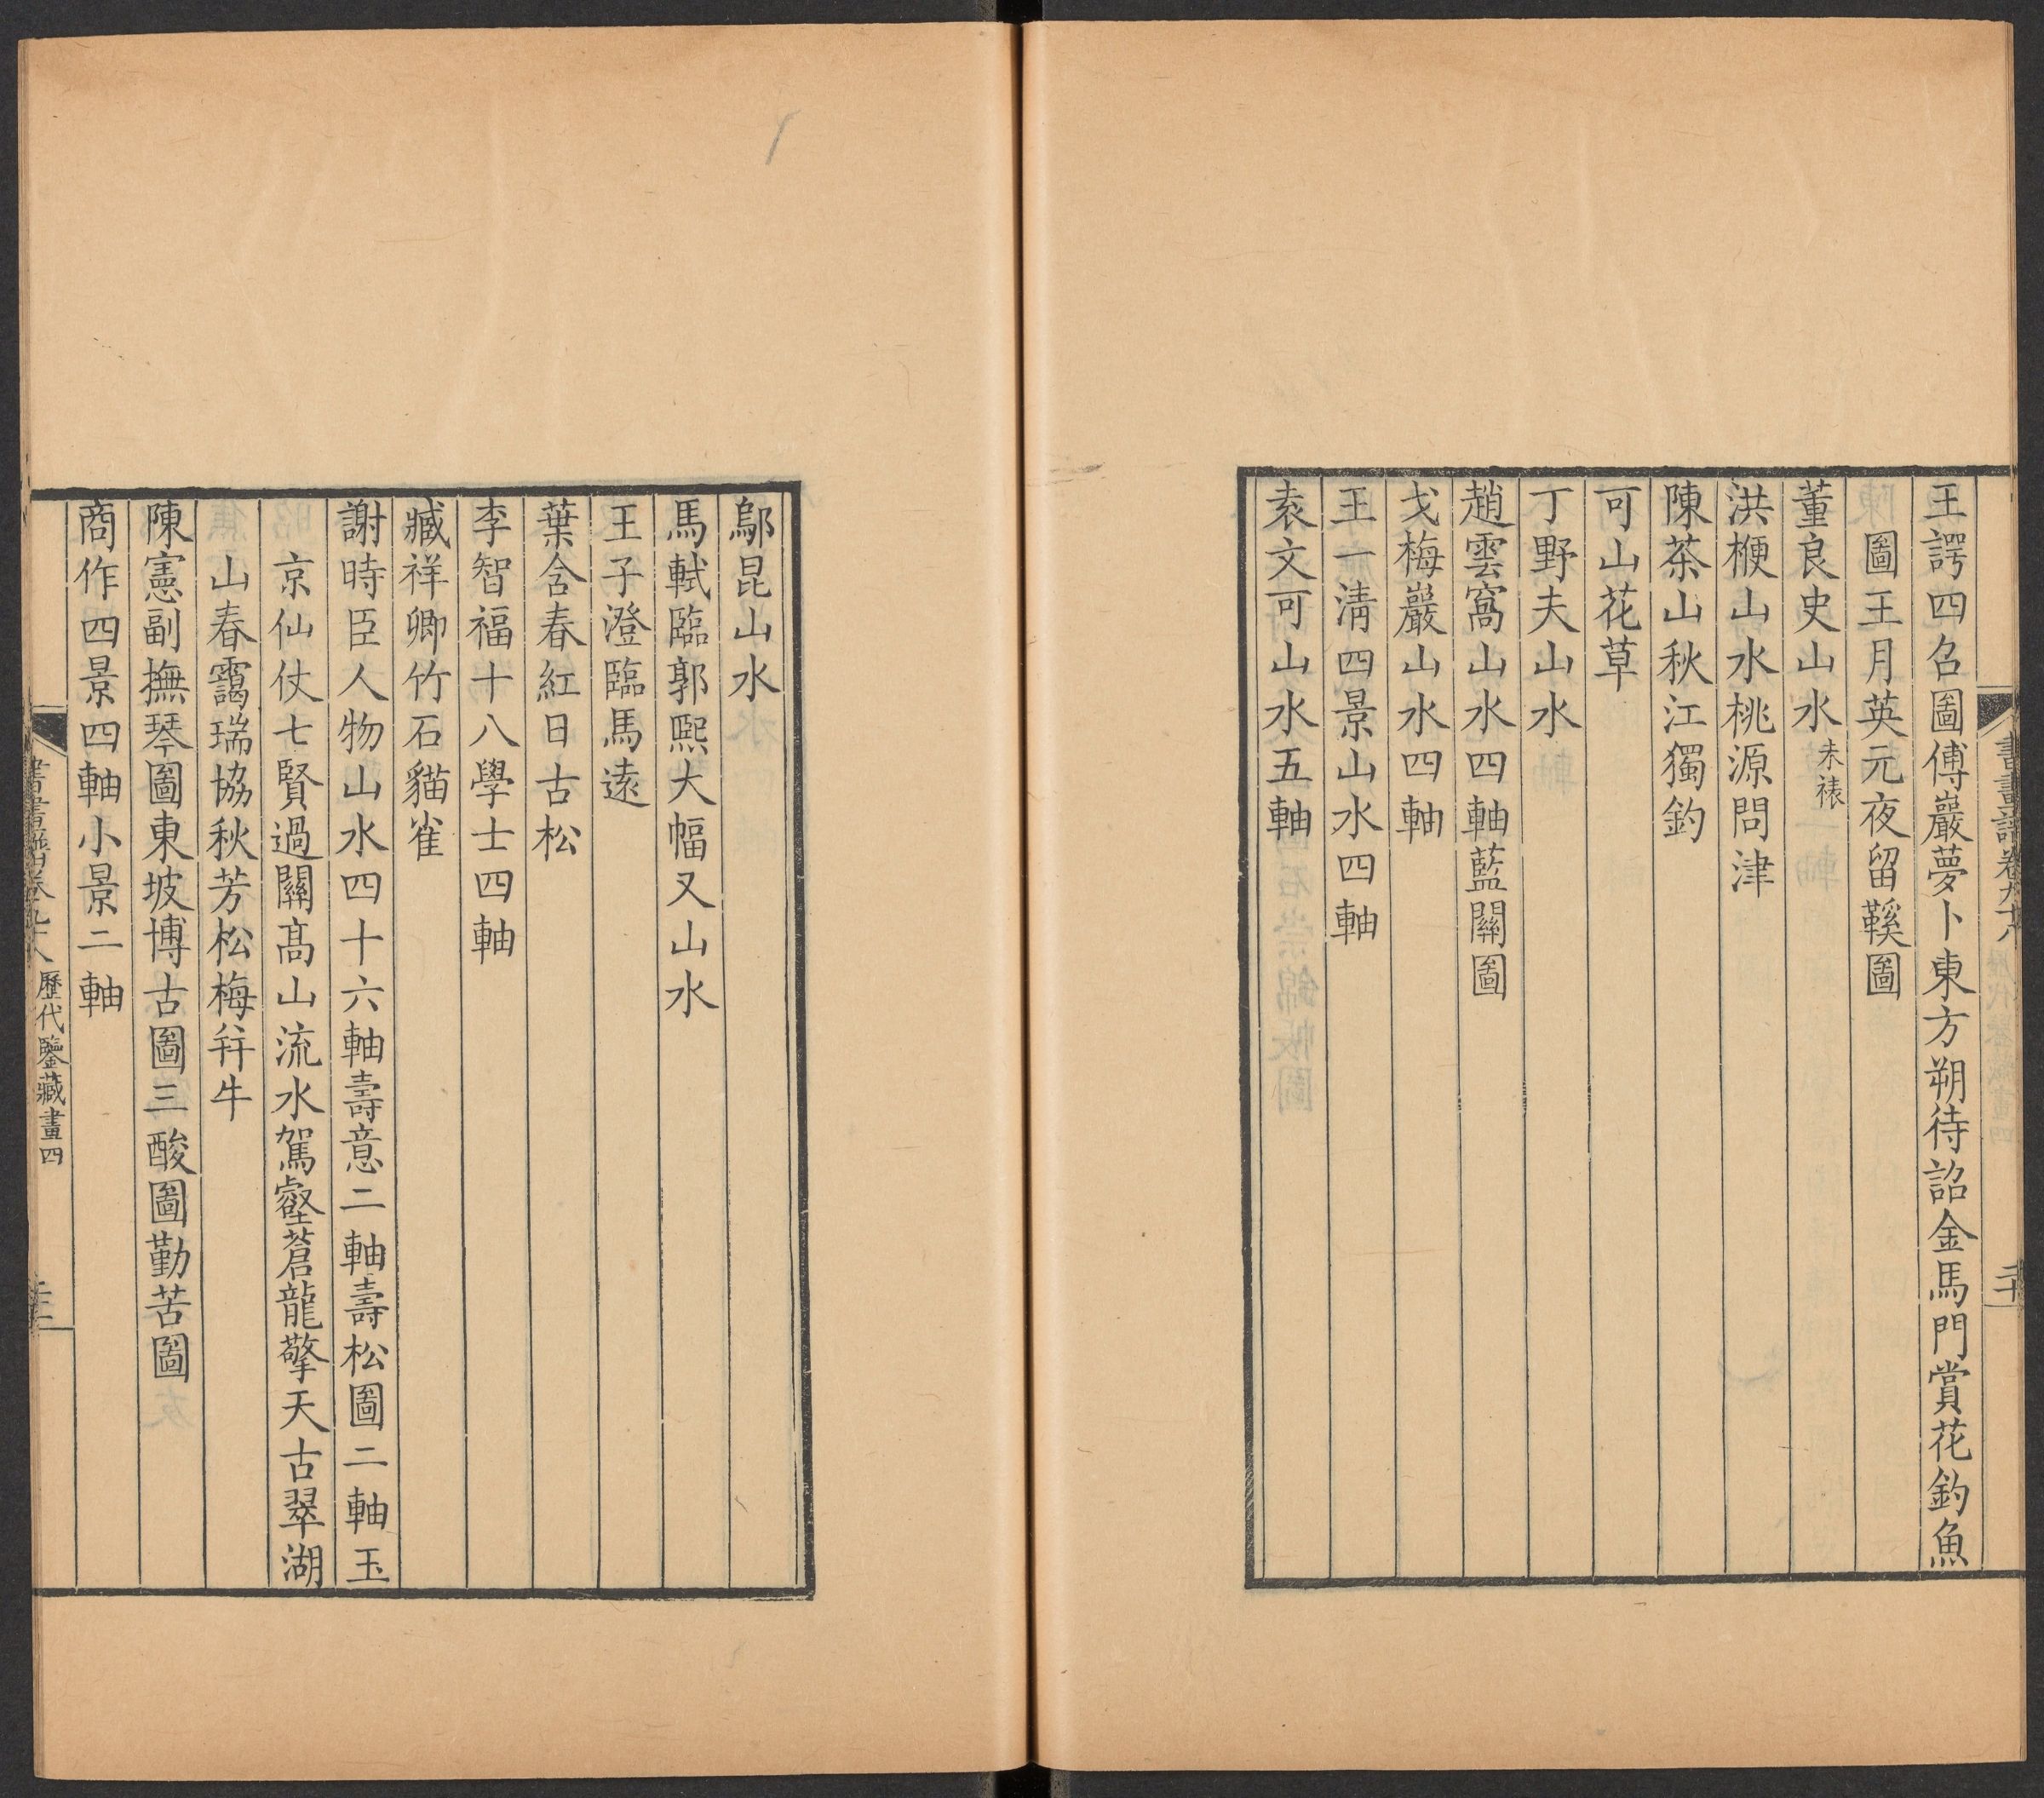 王諤四皓圖傅巖夢卜東方朔待詔金馬門賞花釣魚
圖王月英元夜留鞵圖
董良史山水未裱
洪楩山水桃源問津
陳茶山秋江獨釣
可山花草
丁野夫山水
趙雲窩山水四軸藍關圖
戈梅巖山水四軸
王一淸四景山水四軸
袁文可山水五軸
鄔昆山水
馬軾臨郭熙大幅又山水
王子澄臨馬遠
葉含春紅日古松
李智福十八學士四軸
臧祥卿竹石貓雀
謝時臣人物山水四十六軸壽意二軸壽松圖二軸玉
京仙仗七賢過關髙山流水駕壑蒼龍擎天古翠湖
山春靄瑞協秋芳松梅幷牛
陳憲副撫琴圖東坡博古圖三酸圖勤苦圖
商作四景四軸小景二軸
歷代鑒藏畫四